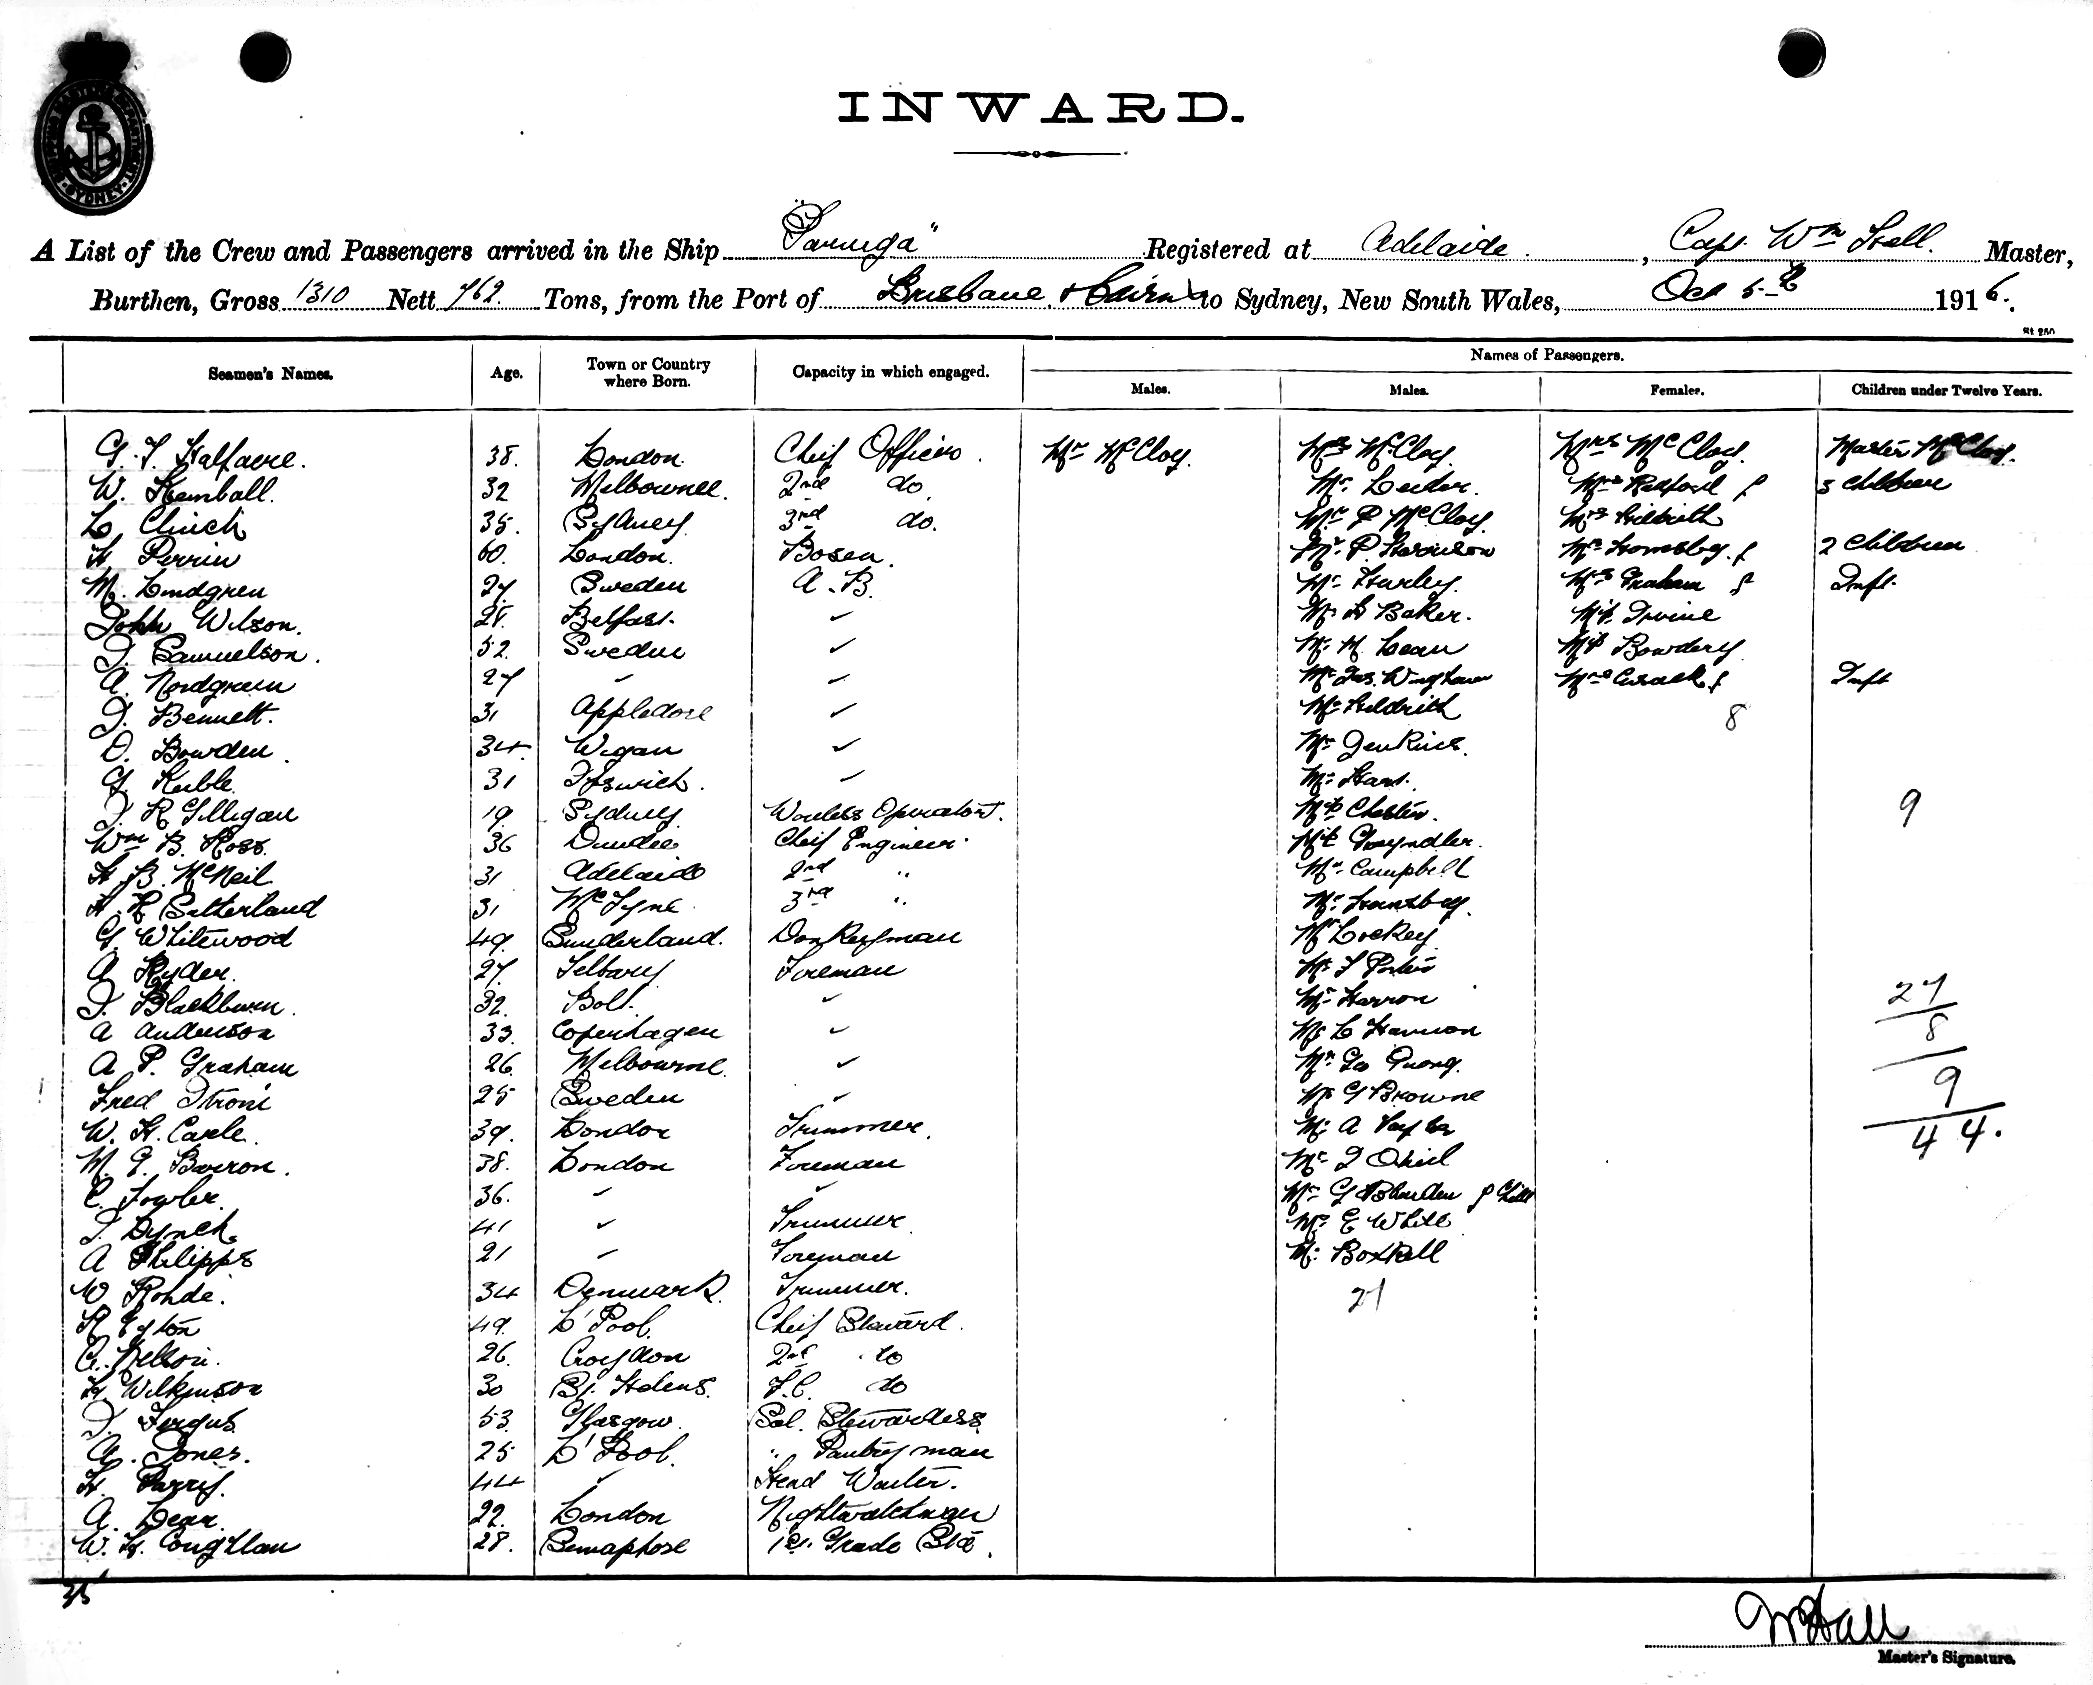 SHIPPING MASTER'S DEPARTMENT SYDNEY
INWARD.
A List of the Crew and Passengers arrived in the Ship "Paringa" Registered at Adelaide, Capt. Wm Hall. Master,
Burthen, Gross 1310 Nett 762. Tons, from the Port of Brisbane & Cairns to Sydney, New South Wales, Oct 5th 1916.
St 250
Seamen's Names. Age. Town or Country where Born. Capacity in which engaged. Names of Passengers.
Males. Males. Females. Children under Twelve Years.
G. F. Halfacre. 38. London Cheif Officer. Mr McCloy. Mr McCloy. Mrs McCloy. Master McCloy.
W. Kemball. 32 Melbourne. 2nd do Mr. Mrs Radford 3 Children
L Clinch 35. Sydney 3rd do. Mr P McCloy. Mrs
H Perrin 60. London. Bosen. Mr. P. Mrs Hornsby. 2 Children
M. Lindgren 27. Sweden A.B. Mr Hurley. Mrs Graham Inft.
John Wilson. 28. Belfast. " Mr Baker. Mrs Irvine
J. Samuelson. 52. Sweden " Mr. M. Lean Bowdery
A. Nordgreen 27 " " Mr Jas. Wingham Mrs Cusack Inft
J. Bennett. 31 Appledore " Mr Heldrich 8
O. Bowden. 34 Wigan " Mr Jenkins.
G. Keeble. 31 Ipswich. " Mr Hart.
J. R Gilligan 19. Sydney Wireless Operator. Chester. 9
Wm B. Ross. 36 Dundee Cheif Engineer. Grayndler.
H B. McNeil 31 Adelaide 2nd " Mr. Campbell
A. R Sutherland 31 3rd " Mr Hornsby.
G Whitewood 49. Sunderland. Donkeyman Mr Lockey
A Ryder. 27. Tilbury Fireman Mr. F Porter
J. Blackburn. 32. Bolt. " Mr Harron 27
A Anderson 33. Copenhagen " Mr L Hannon 8
A P. Graham 26. Melbourne. " Mr Go Quong. 9
Fred 25 Sweden " Mr G Browne 44.
W. H. Carle. 39. London Trimmer. Mr. A Taylor
M. G. Barron. 38. London Fireman Mr J
C. Fowler. 36. " " Mr G Child
J. Lynch. 41 " Trimmer Mr. E White
A Philipps 21 " Fireman Mr. Boxkell
W Rohde. 34 Denmark. Trimmer. 27
R Eyton 49. L'Pool. Cheif Steward.
C. Nelson. 26. Croydon 2nd do
H Wilkinson 30 St. Helens. F.C. do
J. Fergus. 53. Glasgow. Sal. Stewardess
A. Jones. 25 L'Pool. " Pantryman
H. Parry. 44 " Head Waiter.
A. Lear. 22. London Nightwatchman
W. H. Coughlan 28. Semaphore 1st Grade Std.
35
W Hall
Master's Signature.